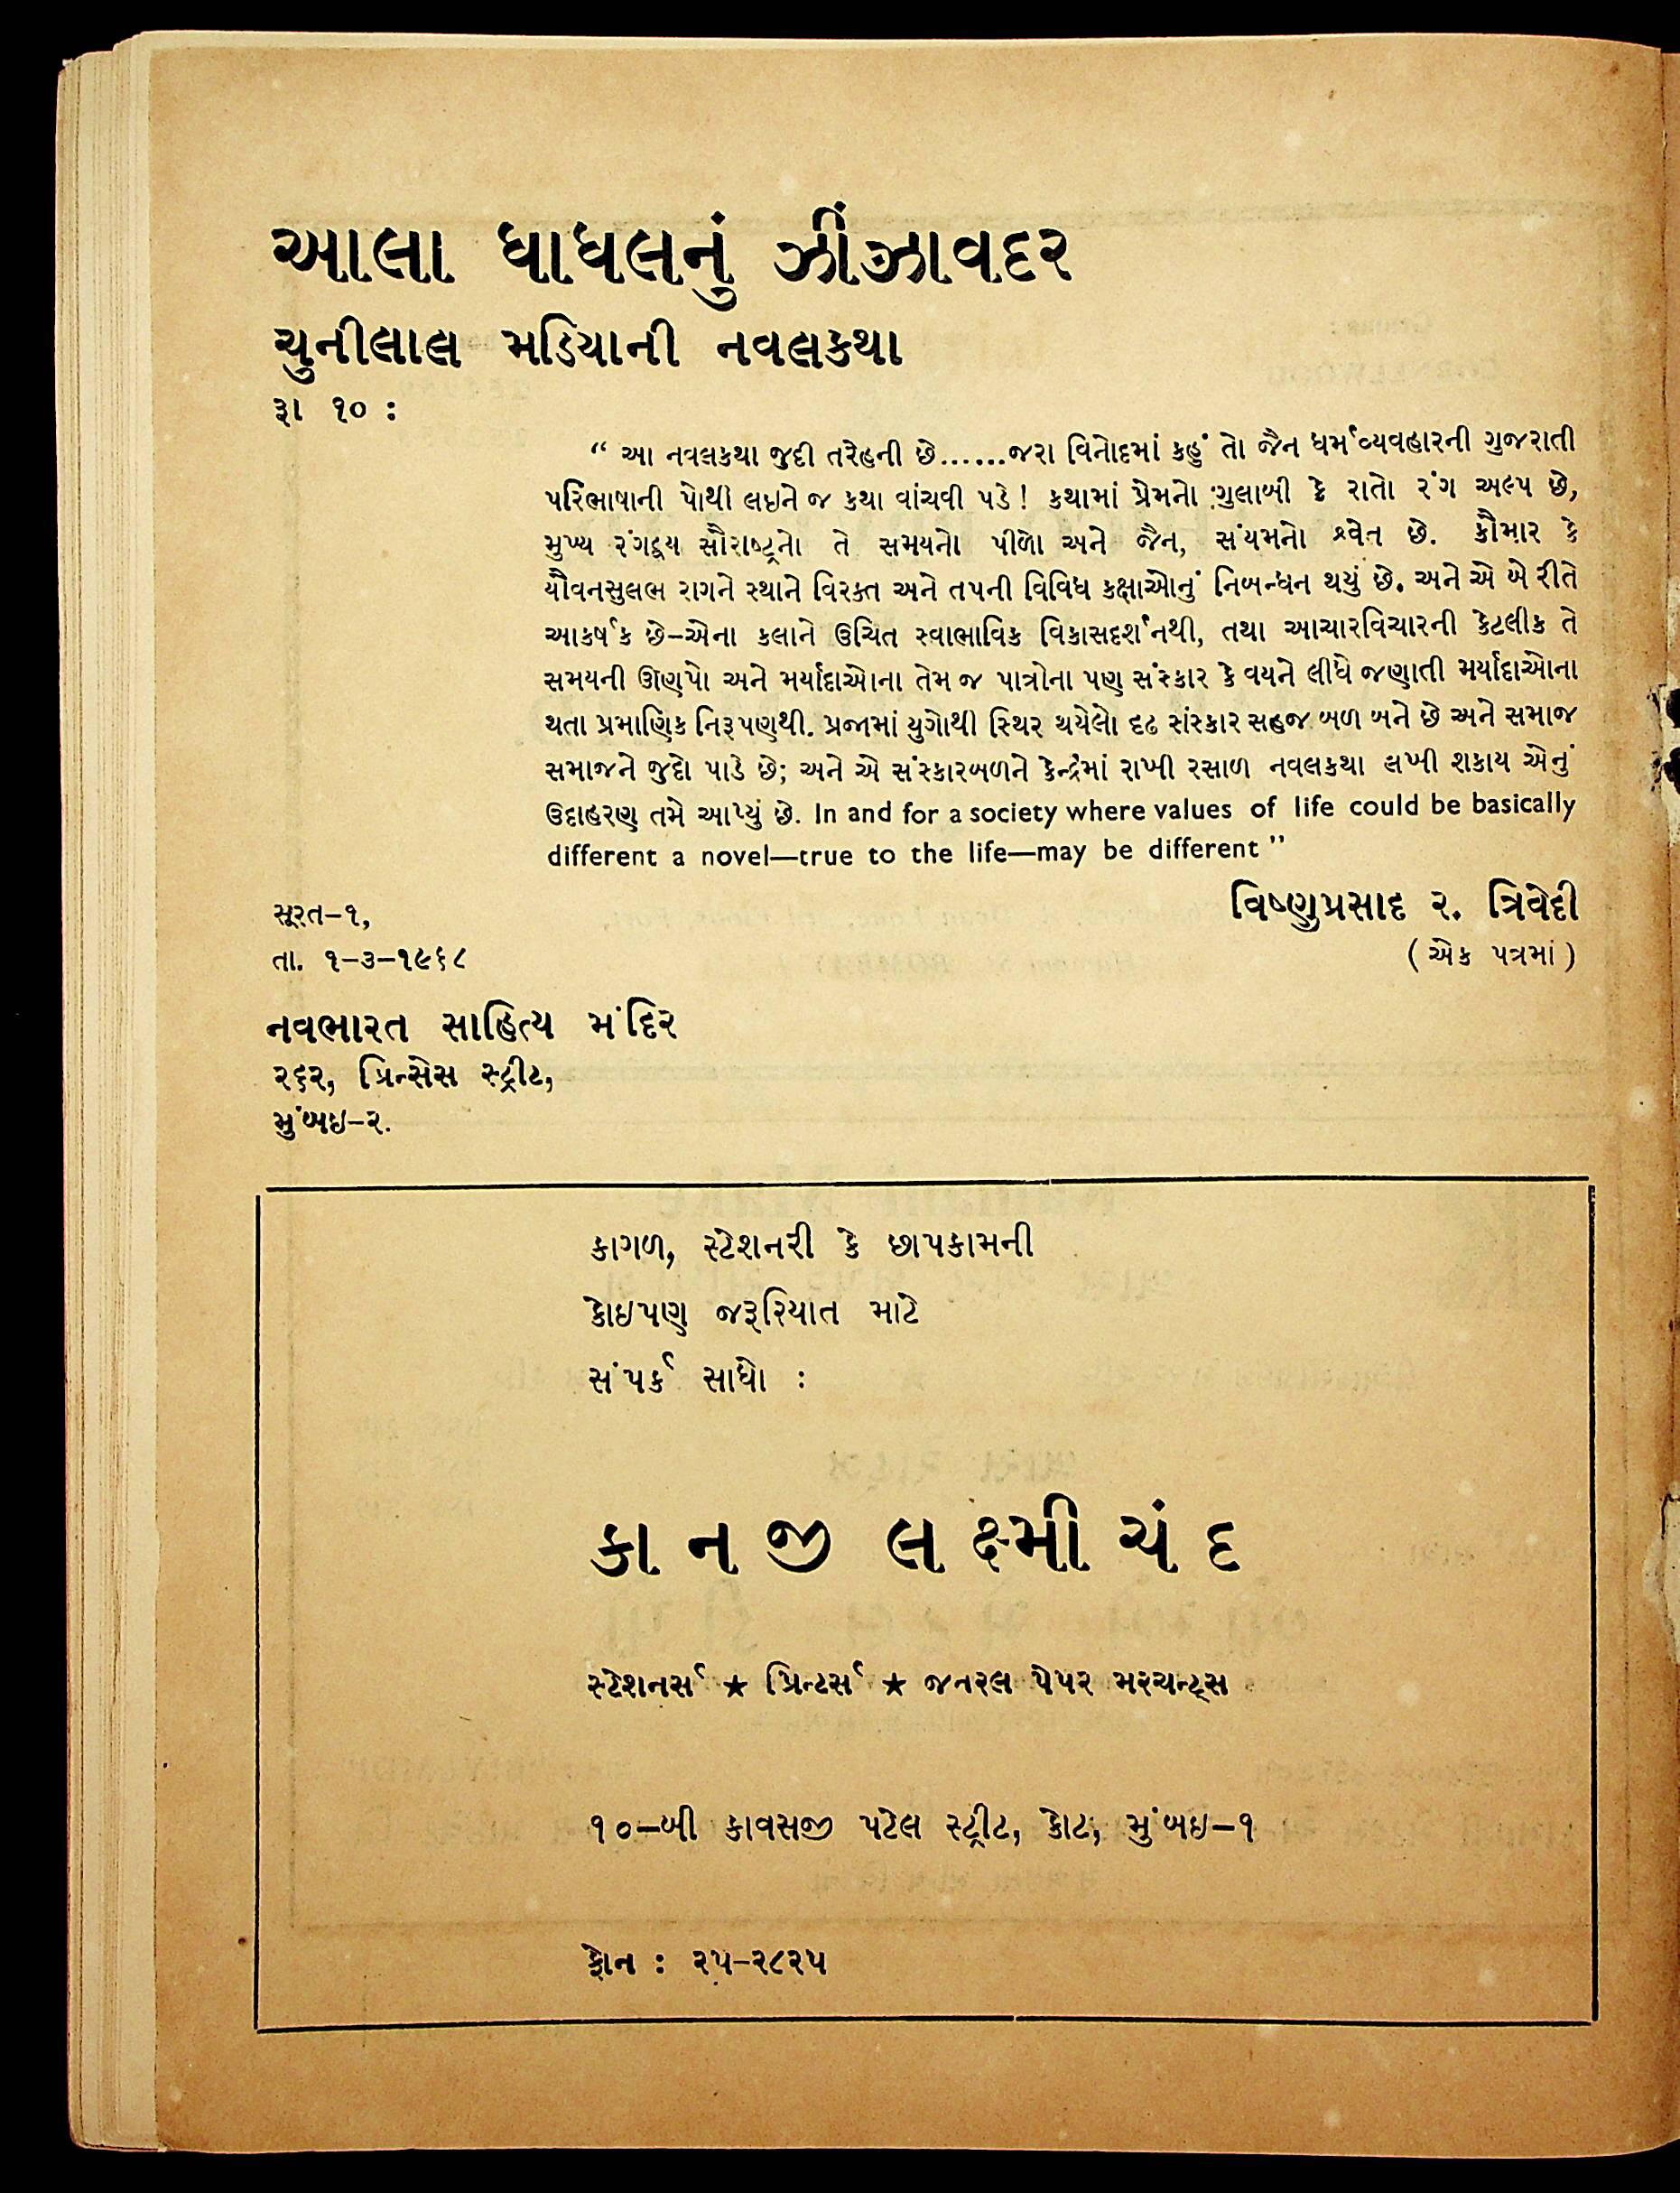 આલા ધાધલનું ઝીંઝાવદર
ચુનીલાલ મડિયાની નવલકથા
રૂા ૧૦ :
“ આ નવલકથા જુદી તરેહની છે......જરા વિનોદમાં કહું તો જૈન ધર્મવ્યવહારની ગુજરાતી
પરિભાષાની પોથી લઇને જ કથા વાંચવી પડે! કથામાં પ્રેમનો ગુલાબી કે રાતો રંગ અલ્પ છે,
મુખ્ય રંગદ્વય સૌરાષ્ટ્રનો તે સમયનો પીળો અને જૈન, સંયમનો શ્વેત છે. કૌમાર કે
યૌવનસુલભ રાગને સ્થાને વિરક્ત અને તપની વિવિધ કક્ષાઓનું નિબન્ધન થયું છે. અને એ બે રીતે
આકર્ષક છે–એના કલાને ઉચિત સ્વાભાવિક વિકાસદર્શનથી, તથા આચારવિચારની કેટલીક તે
સમયની ઊણપો અને મર્યાદાઓના તેમ જ પાત્રોના પણ સંસ્કાર કે વયને લીધે જણાતી મર્યાદાઓના
થતા પ્રમાણિક નિરૂપણથી. પ્રજામાં યુગોથી સ્થિર થયેલો દૃઢ સંસ્કાર સહજ બળ બને છે અને સમાજ
સમાજને જુદો પાડે છે; અને એ સંસ્કારબળને કેન્દ્રમાં રાખી રસાળ નવલકથા લખી શકાય એનું
ઉદાહરણ તમે આપ્યું છે. In and for a society where values of life could be basically
different a novel—true to the life—may be different ”
વિષ્ણુપ્રસાદ ર. ત્રિવેદી
(એક પત્રમાં)
સૂરત–૧,
તા. ૧–૩–૧૯૬૮
નવભારત સાહિત્ય મંદિર
૨૬૨, પ્રિન્સેસ સ્ટ્રીટ,
મુંબઇ–૨.
કાગળ, સ્ટેશનરી કે છાપકામની
કોઇપણ જરૂરિયાત માટે
સંપર્ક સાધો :
કાનજી લક્ષ્મીચંદ
સ્ટેશનર્સ ★ પ્રિન્ટર્સ ★ જનરલ પેપર મરચન્ટ્સ
૧૦–બી કાવસજી પટેલ સ્ટ્રીટ, કોટ, મુંબઇ–૧
ફોન : ૨૫–૨૮૨૫